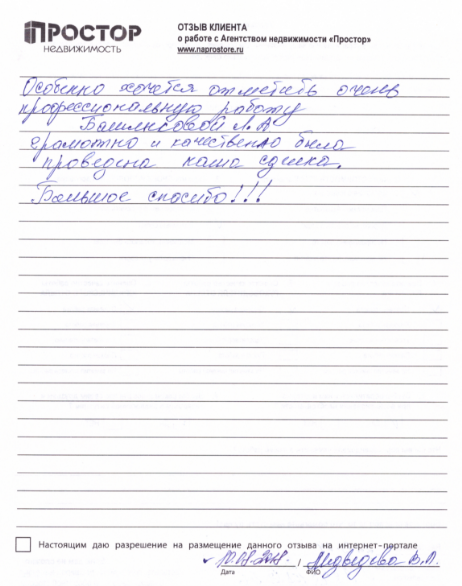 ПРОСТОР
НЕДВИЖИМОСТЬ
ОТЗЫВ КЛИЕНТА
о работе с Агентством недвижимости «Простор»
www.naprostore.ru
Особенно хочется отметить очень
профессиональную работу
Л. А
грамотно и качественно была
проведена наша сделка.
Большое спасибо!!!
Настоящим даю разрешение на размещение данного отзыва на интернет-портале
Медведева В.Л.
Дата ФИО